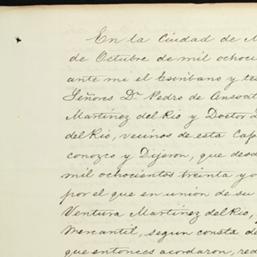 En la Ciudad de M
de Octubre de mil ochoci
ante mi el Escribano y te
Señores Dn. Pedro de Ansoat
Martinez del Rio y Doctor D
del Rio, vecinos de esta Cap
conozco y Dijeron, que desd
mil ochocientos treinta y o
por el que en union de su
Ventura Martinez del Rio,
Mercantil, segun consta de
que entonces acordaron, red